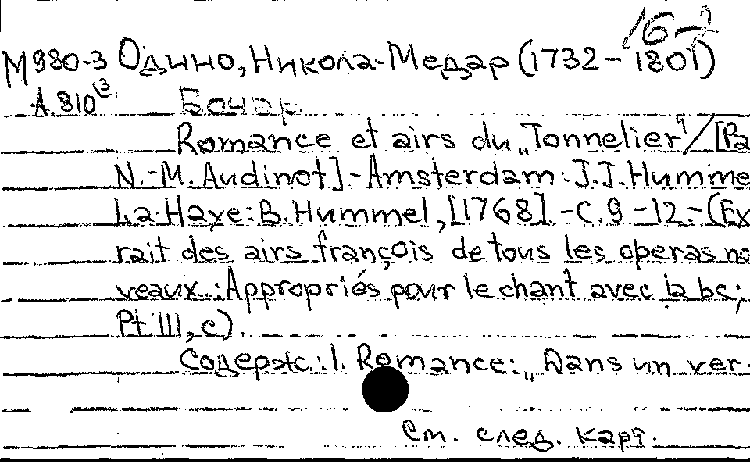 16-7
М980-3 Одино, Никола-Медар (1732-1801)
А.810(3 Бочар
Romance et airs du „Tonnelier"/[Pa
N.-M. Audinot].-Amsterdam: J.J. Humme
La Haye: B. Hummel, [1768].-C. 9-12.-(Ex
rait des airs françois de tous les operas no
veaux: Appropriés pour le chant avec la bc;
Pt III, c).
Содерж.: 1. Romance: „Dans un ver
См. след. карт.